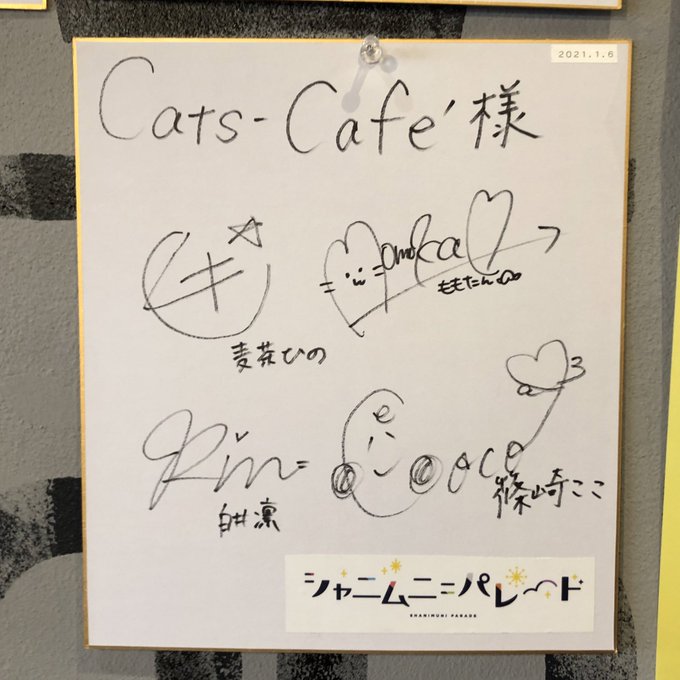 2021.1.6
Cats-Cafe' 様
キ
麦茶ひの
momoka
ももたん
Rin
白井凛
Coco
篠崎ここ
シャニムニ=パレード
SHANIMUNI PARADE